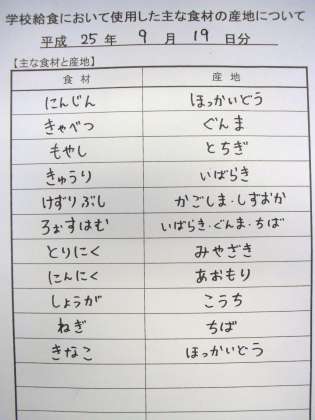 学校給食において使用した主な食材の産地について
平成 25 年 9 月 19 日分
【主な食材と産地】
食材 産地
にんじん ほっかいどう
きゃべつ ぐんま
もやし とちぎ
きゅうり いばらき
けずりぶし かごしま・しずおか
ろぉすはむ いばらき・ぐんま・ちば
とりにく みやざき
にんにく あおもり
しょうが こうち
ねぎ ちば
きなこ ほっかいどう